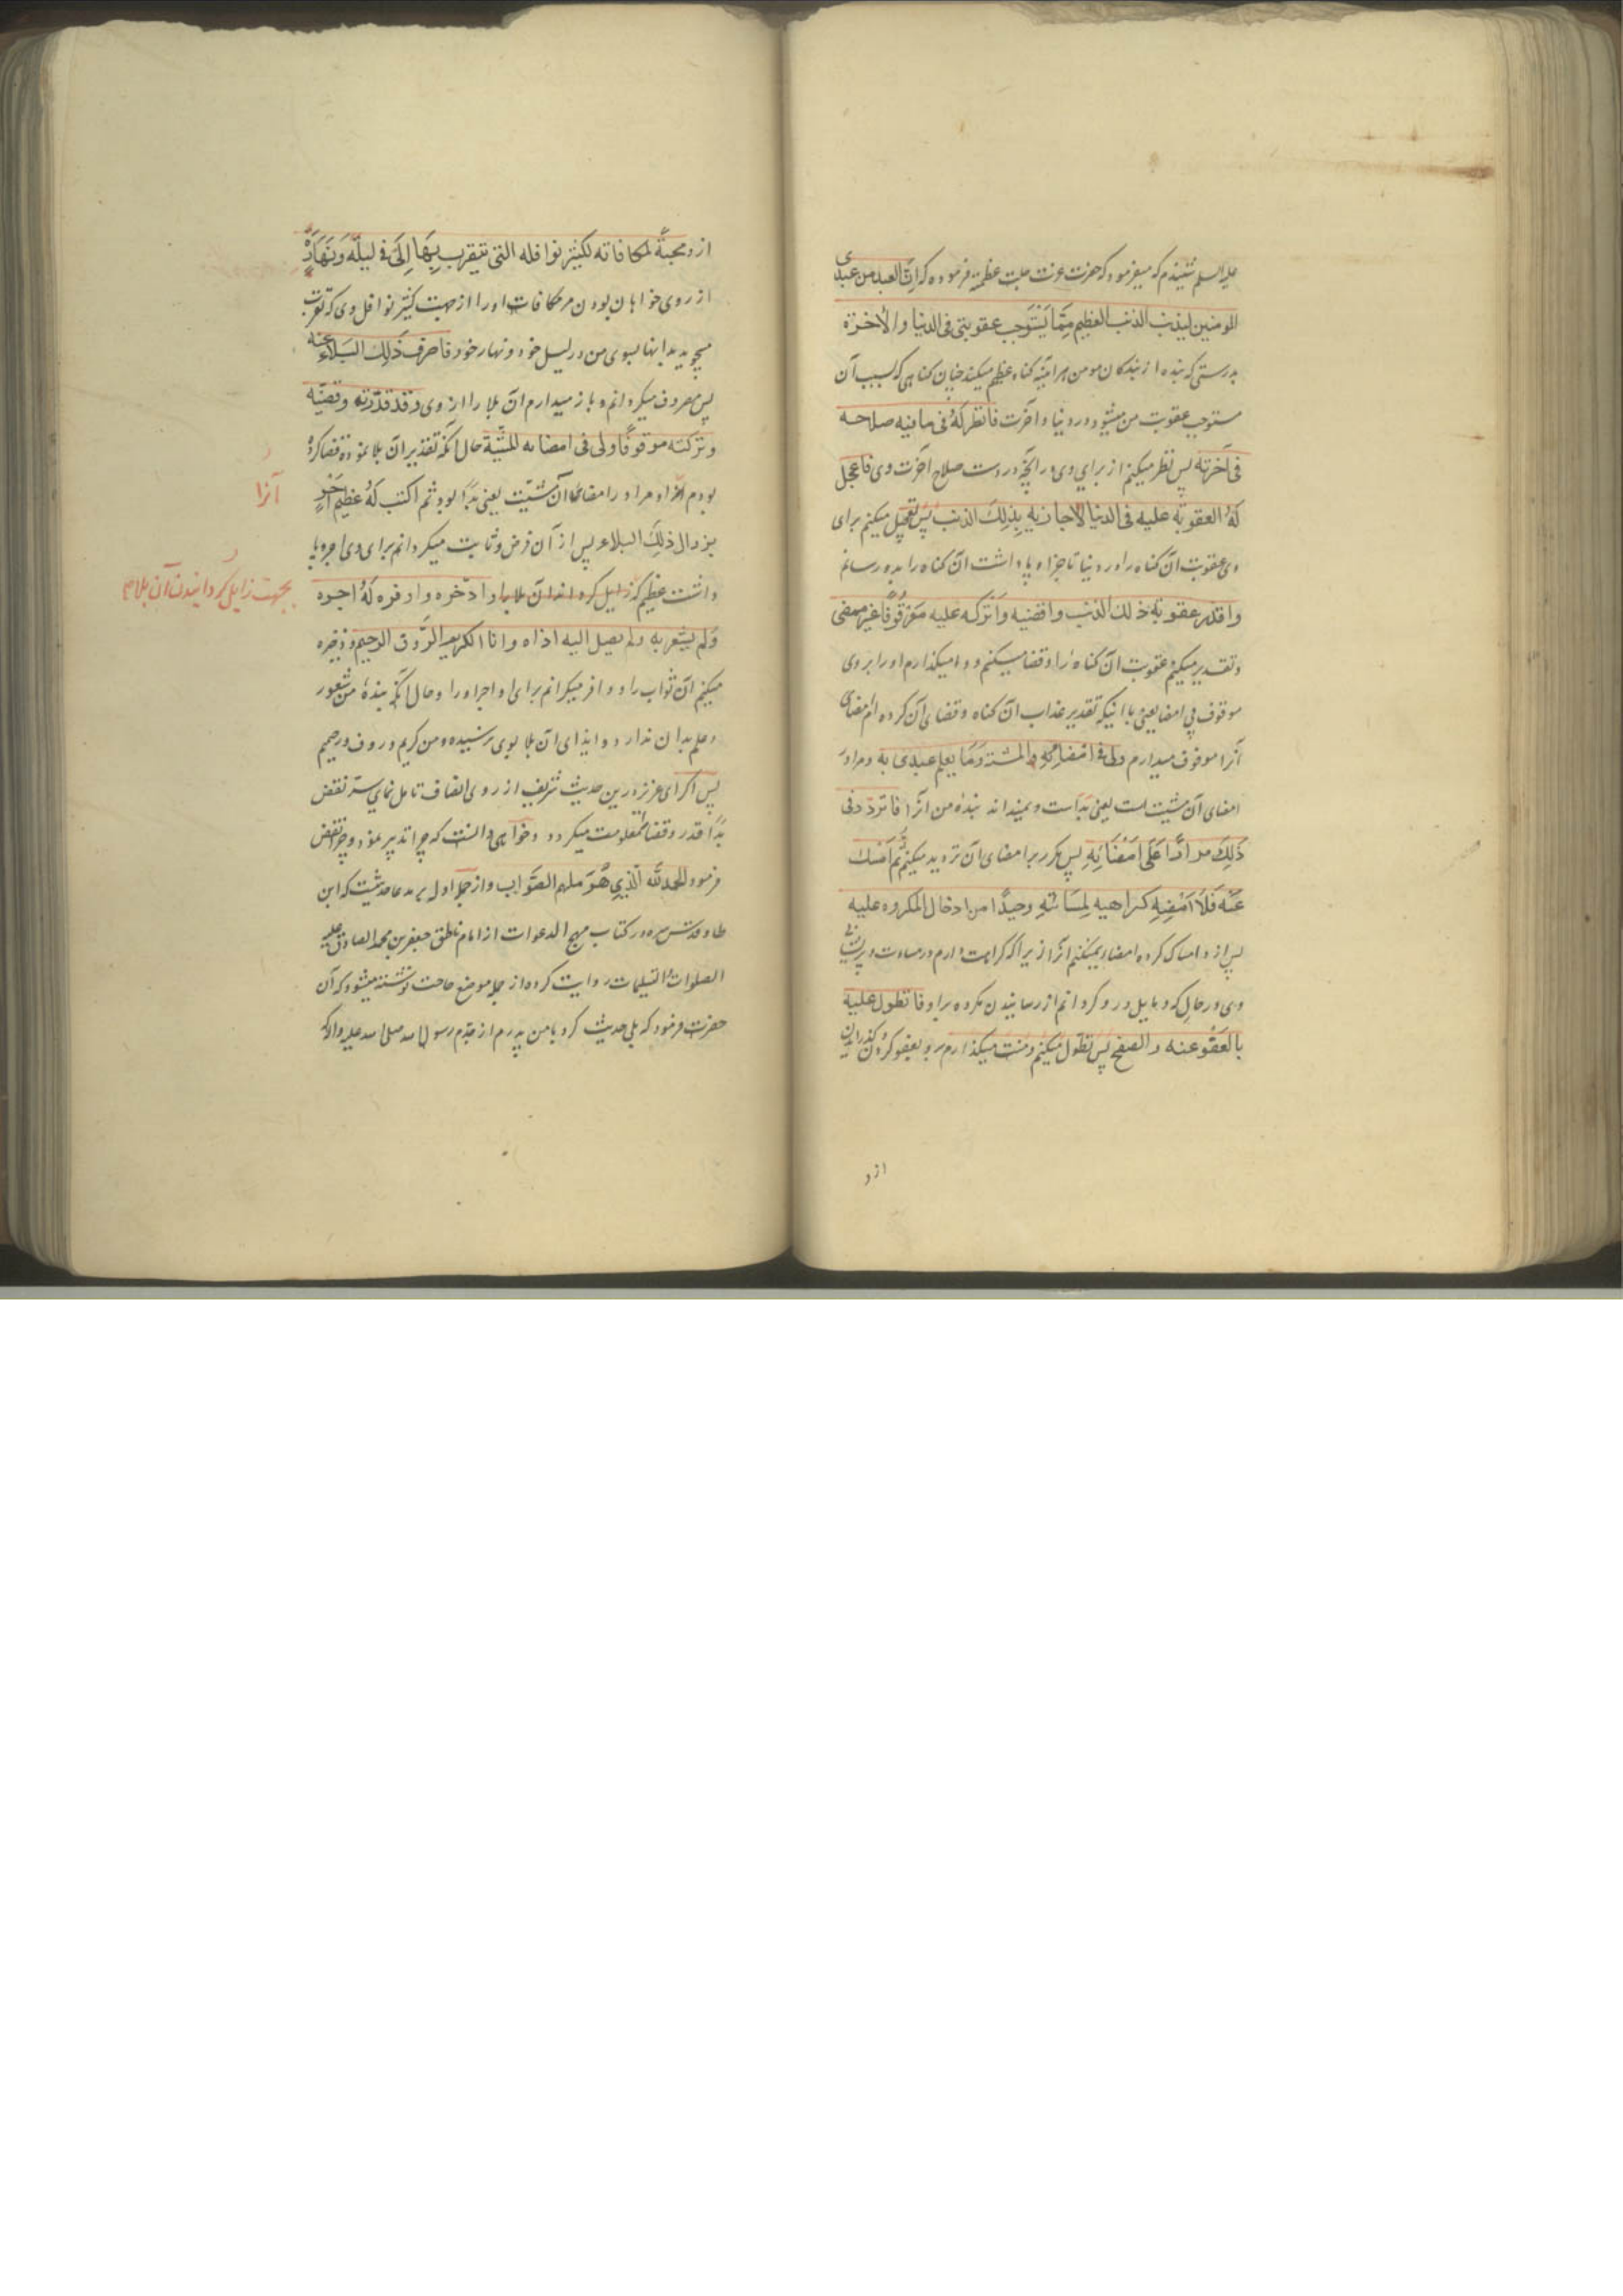 علیه السلم شنیدم که میفرمود که حضرت عزت جلت عظمته فرموده که ان العبد من عبیدی
المومنین لیذنب الذنب العظیم مما یستوجب عقوبتی فی الدنیا والاخرة
بدرستی که بنده از بندکان مومن هر اینه کناه عظیم میکند چنان کناهی که بسبب آن
مستوجب عقوبت من میشود در دنیا و آخرت فانظر له فی ما فیه صلاحه
فی آخرته پس نظر میکنم از برای وی در آنچه دروست صلاح آخرت وی فاعجل
له العقوبة علیه فی الدنیا لاجازیه بذلك الذنب پس تعجیل میکنم برای
وی عقوبت آن کناه را در دنیا تا جزا و پاداشت آن کناه را بدو رسانم
واقدر عقوبة ذلك الذنب واقضیه واترکه علیه موقوفا غیر ممضی
و تقدیر میکنم عقوبت آن کناه را و قضا میکنم و وامیکذارم او را بر وی
موقوف بی امضا یعنی با آنیکه تقدیر عذاب آن کناه و قضای آن کرده ام امضای
آنرا موقوف میدارم ولی فی امضائه المشیة وما یعلم عبدی به و مرا در
امضای آن مشیت است یعنی بداست و نمیداند بنده من آنرا فاتردد فی
ذلك مرارا علی امضائه پس مکرر بر امضای آن تردید میکنم ثم امسك
عنه فلا امضیه کراهیة لمسائته وحیدا من ادخال المکروه علیه
پس از و امساک کرده امضا نمیکنم آنرا زیرا که کراهت دارم در مساءت و پریشانی
وی در حالی که و مایل در و کردانم از رسانیدن مکروه براو فاتطول علیه
بالعفو عنه والصفح پس تطول میکنم و منت میکذارم برو بعفو کردن و کذرانیدن
ازو
ازو محبة لمکافاته لکثیر نوافله التی یتقرب بها الی فی لیله ونهاره
از روی خواهان بودن مر مکافات او را از جهت کثیر نوافل وی که تقرب
میجوید بدانها بسوی من در لیل خود و نهار خود فاصرف ذلك البلاء عنه
پس مصروف میکردانم و باز میدارم آن بلا را از وی وقد قدرته وقضیته
وترکته موقوفا ولی فی امضائه المشیة حال آنکه تقدیر آن بلا نموده قضا کرده
بودم آنرا و مرا در امضای آن مشیت یعنی بدا بود ثم اکتب له عظیم اجر
آنرا
بزوال ذلك البلاء پس از آن فرض و ثابت میکردانم برای وی اجر و پا
داشت عظیم که زایل کرداندن آن بلا وادخره واوفره له اجره
بجهت زایل کردانیدن آن بلا
ولم یشعر به ولم یصل الیه اذاه وانا الکریم الرؤف الرحیم و ذخیره
میکنم آن ثواب را و وافر میکردانم برای او اجر او را و حال آنکه بنده من شعور
و علم بدان ندارد و ایذای آن بلا بوی نرسیده و من کریم و روف و رحیمم
پس اکر ای عزیز درین حدیث شریف از روی انصاف تامل نمای سر نقض
بدا قدر و قضا معلومت میکردد و خواهی دانست که چرا تدبیر نمود و چرا نقض
فرمود الحمد لله الذی هو ملهم الصواب و از جمله ادله بر مدعا حدیثیست که ابن
طاوس قدس سره در کتاب مهج الدعوات از امام ناطق جعفر بن محمد الصادق علیه
الصلوات والتسلیمات روایت کرده از جمله موضع حاجت نوشته میشود که آن
حضرت فرمود که بلی حدیث کرد بامن پدرم از جدم رسول الله صلی الله علیه واله که